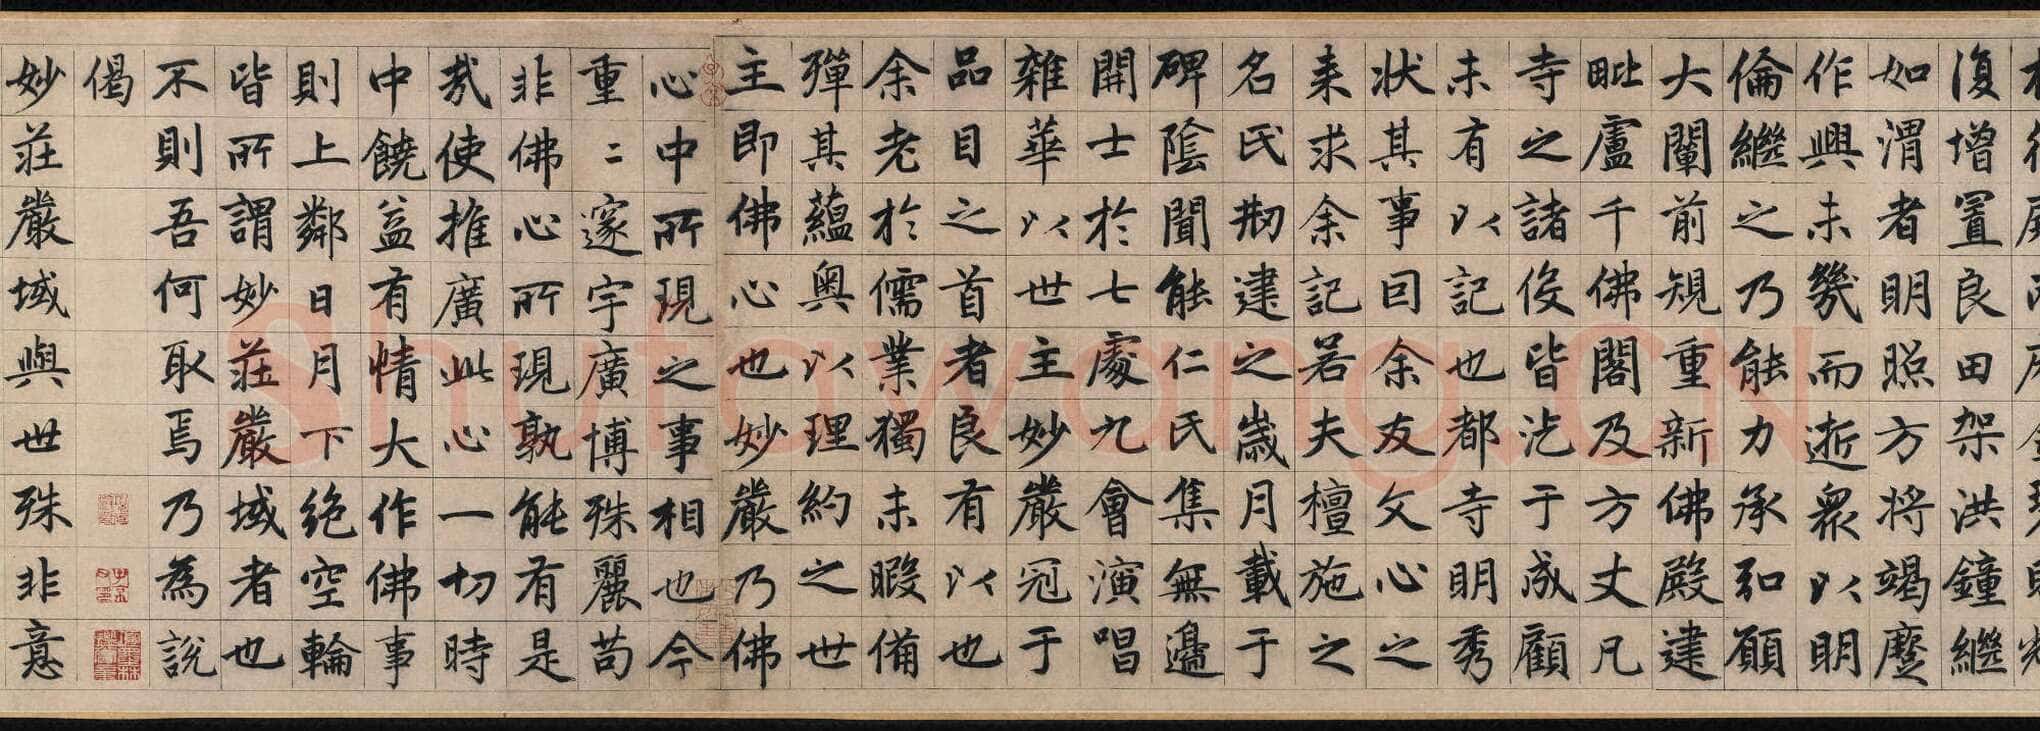 復增置良田架洪鐘繼
如渭者明照方將竭蹷
作興未幾而逝眾以明
倫繼之乃能力承弘願
大闡前規重新佛殿建
毗盧千佛閣及方丈凡
寺之諸役皆汔于成顧
未有以記也都寺明秀
狀其事囙余友文心之
来求余記若夫檀施之
名氏刱建之歲月載于
碑陰聞能仁氏集無邊
開士於七處九會演唱
雜華以世主妙嚴冠于
品目之首者良有以也
余老於儒業獨未暇備
殫其蘊奧以理約之世
主即佛心也妙嚴乃佛
心中所現之事相也今
重〻邃宇廣博殊麗苟
非佛心所現孰能有是
哉使推廣此心一切時
中饒益有情大作佛事
則上鄰日月下絕空輪
皆所謂妙莊嚴域者也
不則吾何取焉乃為說
偈
妙莊嚴域與世殊非意
Shufawang.CN